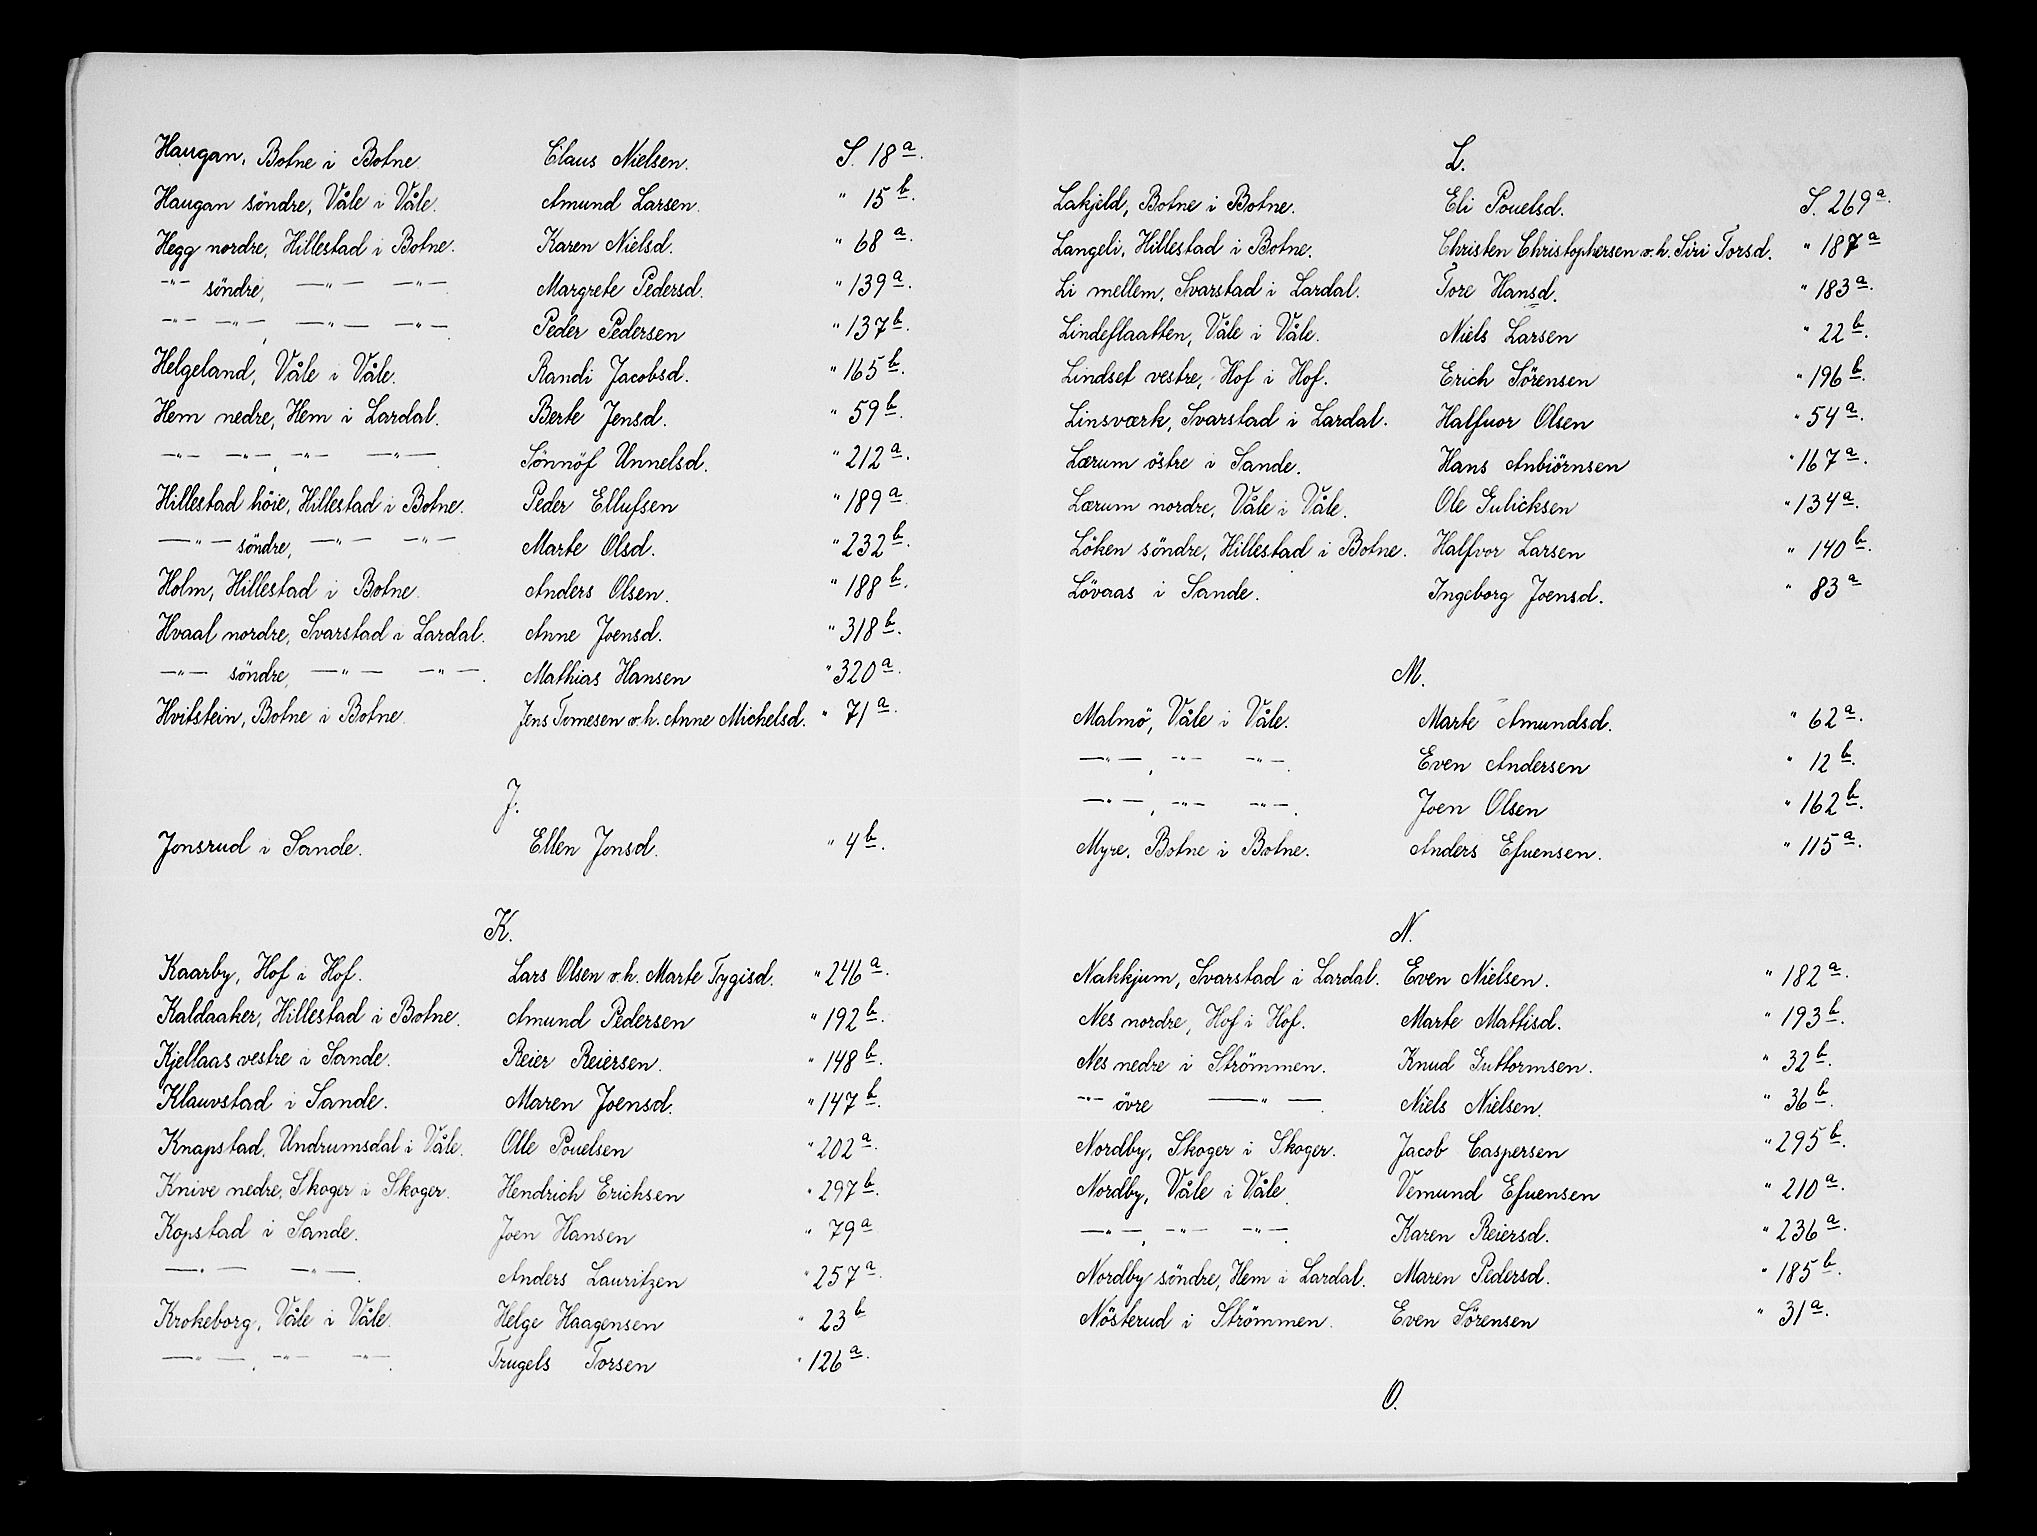 Haugan, Botne i Botne. Claus Nielsen. S. 18 a.
Haugan söndre, Våle i Våle. Amund Larsen. " 15 b.
Hegg nordre, Hillestad i Botne. Karen Nielsd. " 68 a.
—"— söndre, —"— —"— Margrete Pedersd. " 139 a.
—"— —"—, —"— —"—. Peder Pedersen " 137 b.
Helgeland, Våle i Våle. Randi Jacobsd. " 165 b.
Hem nedre, Hem i Lardal. Berte Jensd. " 59 b.
—"— —"—, —"— —"—. Sönnöf Unnelsd. " 212 a.
Hillestad höie, Hillestad i Botne. Peder Ellufsen " 189 a.
—"— söndre, —"— —"— Marte Olsd. " 232 b.
Holm, Hillestad i Botne. Anders Olsen. " 188 b.
Hvaal nordre, Svarstad i Lardal. Anne Joensd. " 318 b.
—"— söndre, —"— —"—. Mathias Hansen " 320 a.
Hvitstein, Botne i Botne. Jens Tomesen o.h. Anne Michelsd. " 71 a.
J.
Jonsrud i Sande. Ellen Jonsd. " 4 b.
K.
Kaarby, Hof i Hof. Lars Olsen o.h. Marte Tygisd. " 246 a.
Kaldaaker, Hillestad i Botne. Amund Pedersen " 192 b.
Kjellaas vestre i Sande. Reier Reiersen. " 148 b.
Klauvstad i Sande. Maren Joensd. " 147 b.
Knapstad, Undrumsdal i Våle. Olle Pouelsen " 202 a.
Knive nedre, Skoger i Skoger. Hendrich Erichsen " 297 b.
Kopstad i Sande. Joen Hansen " 79 a
—"— —"—. Anders Lauritzen " 257 a.
Krokeborg, Våle i Våle. Helge Haagensen " 23 b
—"—, —"— —"—. Trugels Torsen " 126 a.
L.
Lakjeld, Botne i Botne. Eli Pouelsd. S. 269 a.
Langeli, Hillestad i Botne. Christen Christophersen o.h. Siri Torsd. " 187 a
Li mellem, Svarstad i Lardal. Tore Hansd. " 183 a.
Lindeflaatten, Våle i Våle. Niels Larsen " 22 b.
Lindset vestre, Hof i Hof. Erich Sörensen " 196 b.
Linsværk, Svarstad i Lardal. Halfuor Olsen " 54 a.
Lærum östre i Sande. Hans Anbiörnsen " 167 a.
Lærum nordre, Våle i Våle. Ole Gulicksen " 134 a.
Löken söndre, Hillestad i Botne. Halfvor Larsen " 140 b.
Lövaas i Sande. Ingeborg Joensd. " 83 a
M.
Malmö, Våle i Våle. Marte Amundsd. " 62 a.
—"—, —"— —"—. Even Andersen " 12 b.
—"—, —"— —"—. Joen Olsen " 162 b.
Myre, Botne i Botne. Anders Efuensen. " 115 a.
N.
Nakkjum, Svarstad i Lardal. Even Nielsen. " 182 a.
Nes nordre, Hof i Hof. Marte Mattisd. " 193 b.
Nes nedre i Strömmen. Knud Guttormsen. " 32 b.
—"— övre —"—. Niels Nielsen. " 36 b.
Nordby, Skoger i Skoger. Jacob Caspersen " 295 b.
Nordby, Våle i Våle. Vemund Efuensen " 210 a.
—"—, —"— —"—. Karen Reiersd. " 236 a.
Nordby söndre, Hem i Lardal. Maren Pedersd. " 185 b.
Nösterud i Strömmen. Even Sörensen " 31 a.
O.